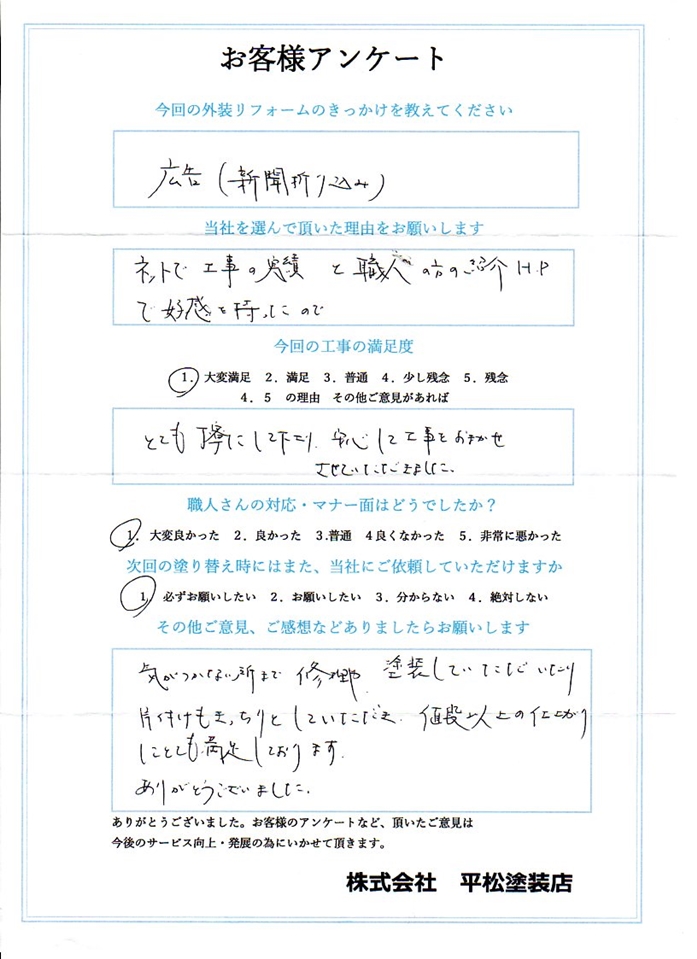 お客様アンケート
今回の外装リフォームのきっかけを教えてください
広告（新聞折り込み）
当社を選んで頂いた理由をお願いします
ネットで 工事の実績 と 職人の方の紹介 H.P
で好感を持ったので
今回の工事の満足度
1. 大変満足 2. 満足 3. 普通 4. 少し残念 5. 残念
4. 5 の理由 その他ご意見があれば
とても 丁寧にして下さり、安心して工事をおまかせ
させていただきました。
職人さんの対応・マナー面はどうでしたか？
1. 大変良かった 2. 良かった 3.普通 4良くなかった 5. 非常に悪かった
次回の塗り替え時にはまた、当社にご依頼していただけますか
1. 必ずお願いしたい 2. お願いしたい 3. 分からない 4. 絶対しない
その他ご意見、ご感想などありましたらお願いします
気がつかない所まで 修理、塗装していただいたり
片付けもきっちりとしていただき、値段以上の仕上がり
にとても満足しております。
ありがとうございました。
ありがとうございました。お客様のアンケートなど、頂いたご意見は
今後のサービス向上・発展の為にいかせて頂きます。
株式会社 平松塗装店